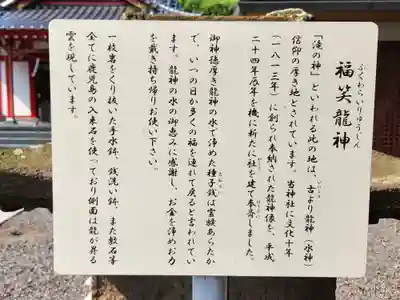 ふくわらいりゅうじん
福笑龍神
「滝の神」といわれる此の地は、古より龍神（水神）
信仰の厚き地とされています。当神社に文化十年
（一八一三年）に創られ奉納された龍神様を、平成
二十四年辰年を機に新たに社を建て奉斎しました。
御神徳厚き龍神の水で浄めた種子銭は霊験あらたか
で、いつの日か多くの福を連れて戻ると言われてい
ます。龍神の水の御恵みに感謝し、お金を浄めお力
を戴き持ち帰りお使い下さい。
一枚岩をくり抜いた手水鉢、銭洗い鉢、また敷石等
全てに鹿児島の入来石を使っており側面は龍が昇る
雲を現しています。